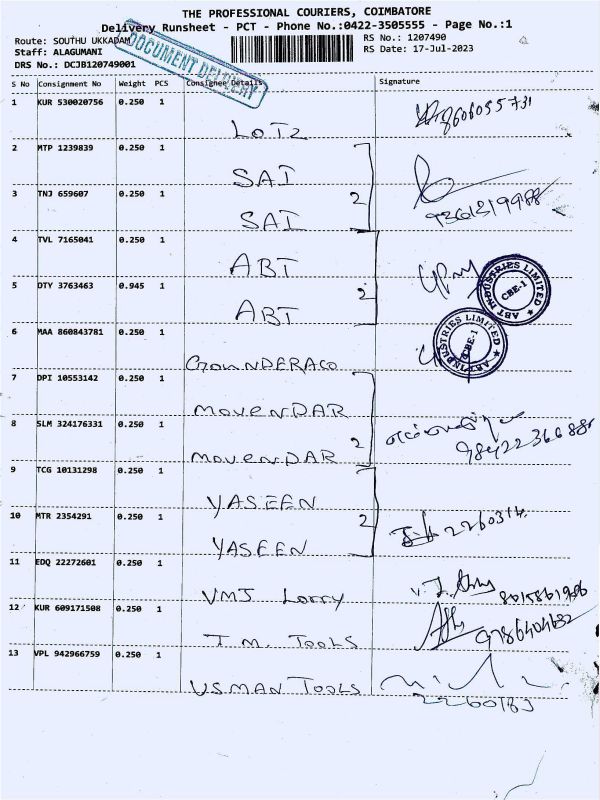 THE PROFESSIONAL COURIERS, COIMBATORE
Delivery Runsheet - PCT - Phone No.:0422-3505555 - Page No.:1
Route: SOUTHU UKKADAM RS No.: 1207490
Staff: ALAGUMANI RS Date: 17-Jul-2023
DRS No.: DCJB120749001
DOCUMENT DELIVERY
S No Consignment No Weight PCS Consignee Details Signature
1 KUR 530020756 0.250 1
LOTZ 8606055731
2 MTP 1239839 0.250 1
SAI
2
3 TNJ 659607 0.250 1
SAI 9361319988
4 TVL 7165041 0.250 1
ABT
ABT INDUSTRIES LIMITED
CBE-1
5 DTY 3763463 0.945 1
2
ABT
ABT INDUSTRIES LIMITED
CBE-1
6 MAA 860843781 0.250 1
7 DPI 10553142 0.250 1
MOVENDAR
8 SLM 324176331 0.250 1
2
MOVENDAR
9 TCG 10131298 0.250 1
YASEEN
10 MTR 2354291 0.250 1
2
YASEEN
11 EDQ 22272601 0.250 1
VMJ Lorry
12 KUR 609171508 0.250 1
T.M. TOOLS 9786404632
13 VPL 942966759 0.250 1
USMAN TOOLS